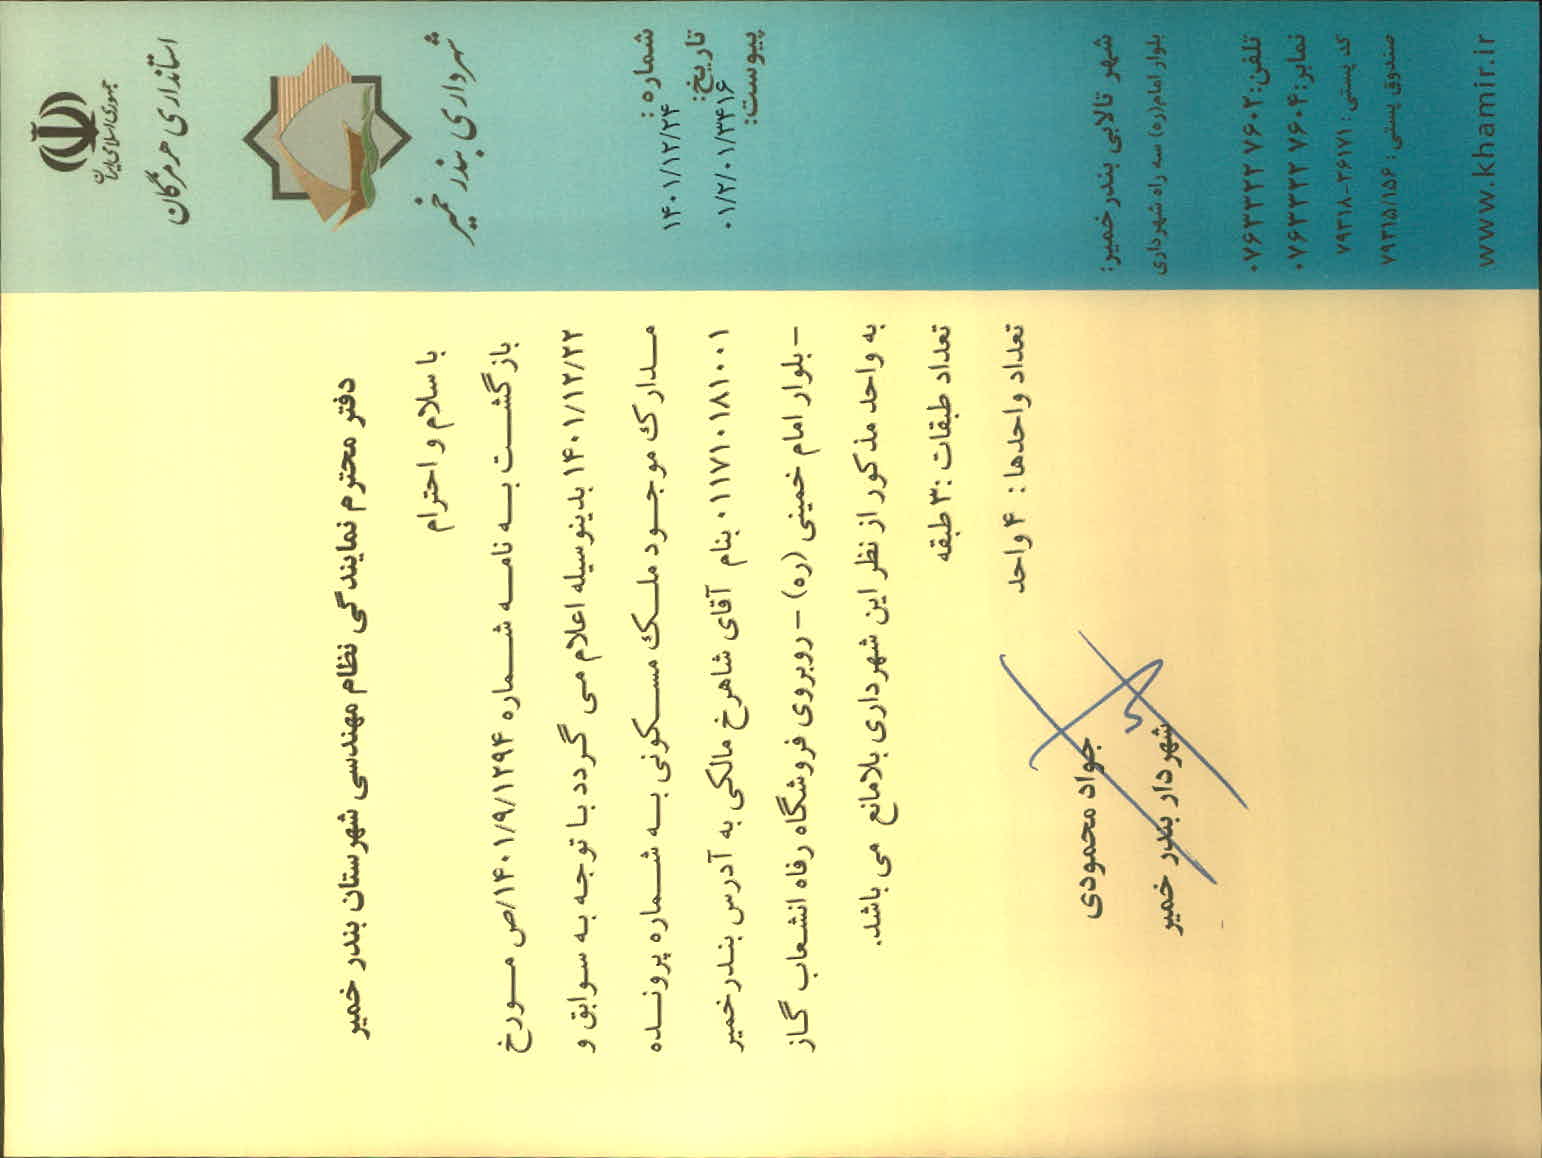 جمهوری اسلامی ایران
استانداری هرمزگان
شهرداری بندر خمیر
شماره :
۱۴۰۱/۱۲/۲۴
تاریخ:
۰۱/۲/۰۱/۳۴۱۶
پیوست:
شهر تالابی بندر خمیر:
بلوار امام(ره) سه راه شهرداری
تلفن: ۰۷۶۳۳۲۲ ۷۶۰۲
نمابر: ۰۷۶۳۳۲۲ ۷۶۰۴
کد پستی: ۷۹۳۱۸-۲۶۱۷۱
صندوق پستی : ۷۹۳۱۵/۱۵۶
www.khamir.ir
دفتر محترم نمایندگی نظام مهندسی شهرستان بندر خمیر
با سلام و احترام
بازگشت به نامه شماره ۱۴۰۱/۹/۱۲۹۴/ص مورخ
۱۴۰۱/۱۲/۲۲ بدینوسیله اعلام می گردد با توجه به سوابق و
مدارک موجود ملک مسکونی به شماره پرونده
۰۱۱۷۱۰۱۸۱۰۰۱ بنام آقای شاهرخ مالکی به آدرس بندرخمیر
– بلوار امام خمینی (ره) – روبروی فروشگاه رفاه انشعاب گاز
به واحد مذکور از نظر این شهرداری بلامانع می باشد.
تعداد طبقات :۳ طبقه
تعداد واحدها : ۴ واحد
جواد محمودی
شهردار بندر خمیر